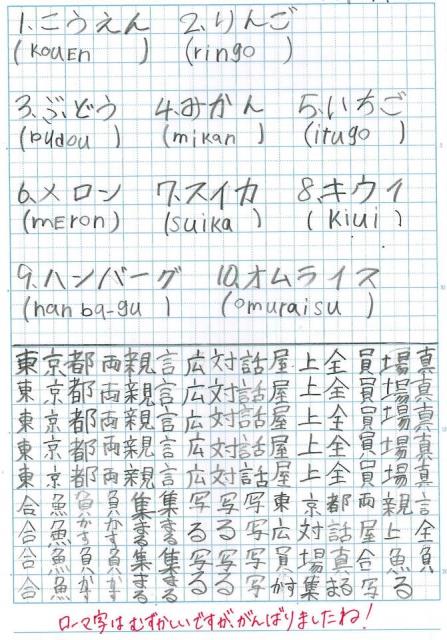 1.こうえん 2.りんご
(kouEn) (ringo)
3.ぶどう 4.みかん 5.いちご
(budou) (mikan) (itugo)
6.メロン 7.スイカ 8.キウイ
(mEron) (suika) (kiui)
9.ハンバーグ 10.オムライス
(hanba-gu) (omuraisu)
東京都両親言広対話屋上全員場真
東京都両親言広対話屋上全員場真
東京都両親言広対話屋上全員場真
東京都両親言広対話屋上全員場真
東京都両親言広対話屋上全員場真
合魚負負集集写写写東京都両親言
合魚かすかすまるまるるる写広対話屋上全
合魚負負集集写写写員場真合魚負
合魚かすかすまるまるるる写かす集まる写る
ローマ字はむずかしいですが、がんばりましたね!